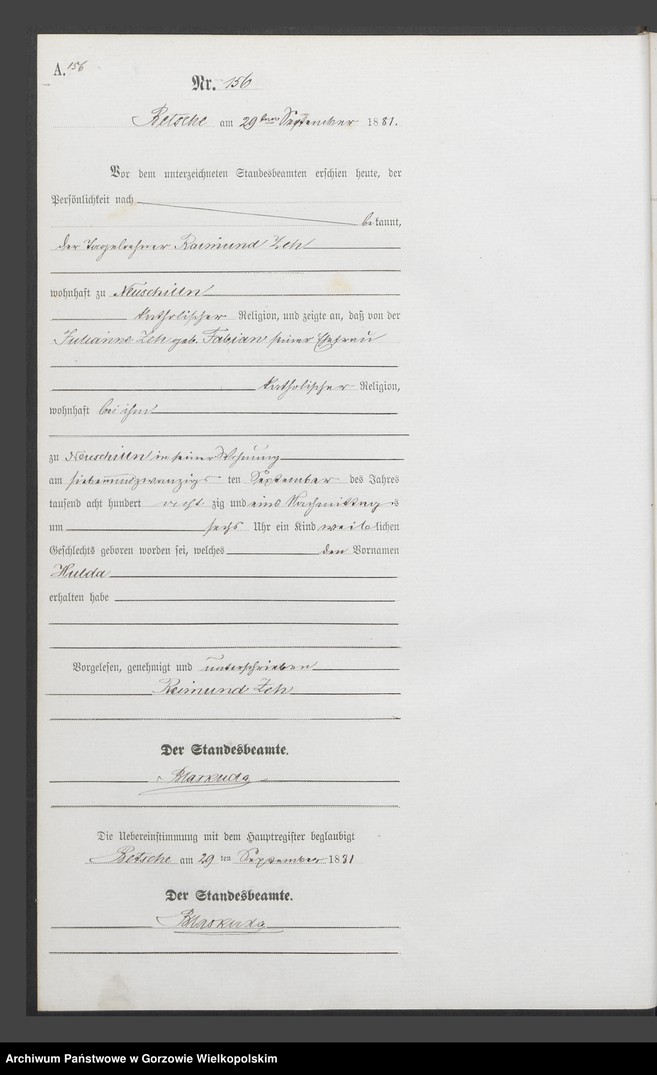 A. 156
Nr. 156
Betsche am 29 ten September 1881.
Vor dem unterzeichneten Standesbeamten erschien heute, der
Persönlichkeit nach
bekannt,
der Tagelöhner Raimund Zeh
wohnhaft zu
katholischer Religion, und zeigte an, daß von der
Julianne Zeh geb. Fabian seiner Ehefrau
katholischer Religion,
wohnhaft bei ihm
zu in seiner Wohnung
am siebenundzwanzig ten September des Jahres
tausend acht hundert acht zig und eins Nachmittags
um sechs Uhr ein Kind weiblichen
Geschlechts geboren worden sei, welches den Vornamen
Hulda
erhalten habe
Vorgelesen, genehmigt und unterschrieben
Reimund Zeh
Der Standesbeamte.
Die Uebereinstimmung mit dem Hauptregister beglaubigt
Betsche am 29 ten September 1881
Der Standesbeamte.
Archiwum Państwowe w Gorzowie Wielkopolskim